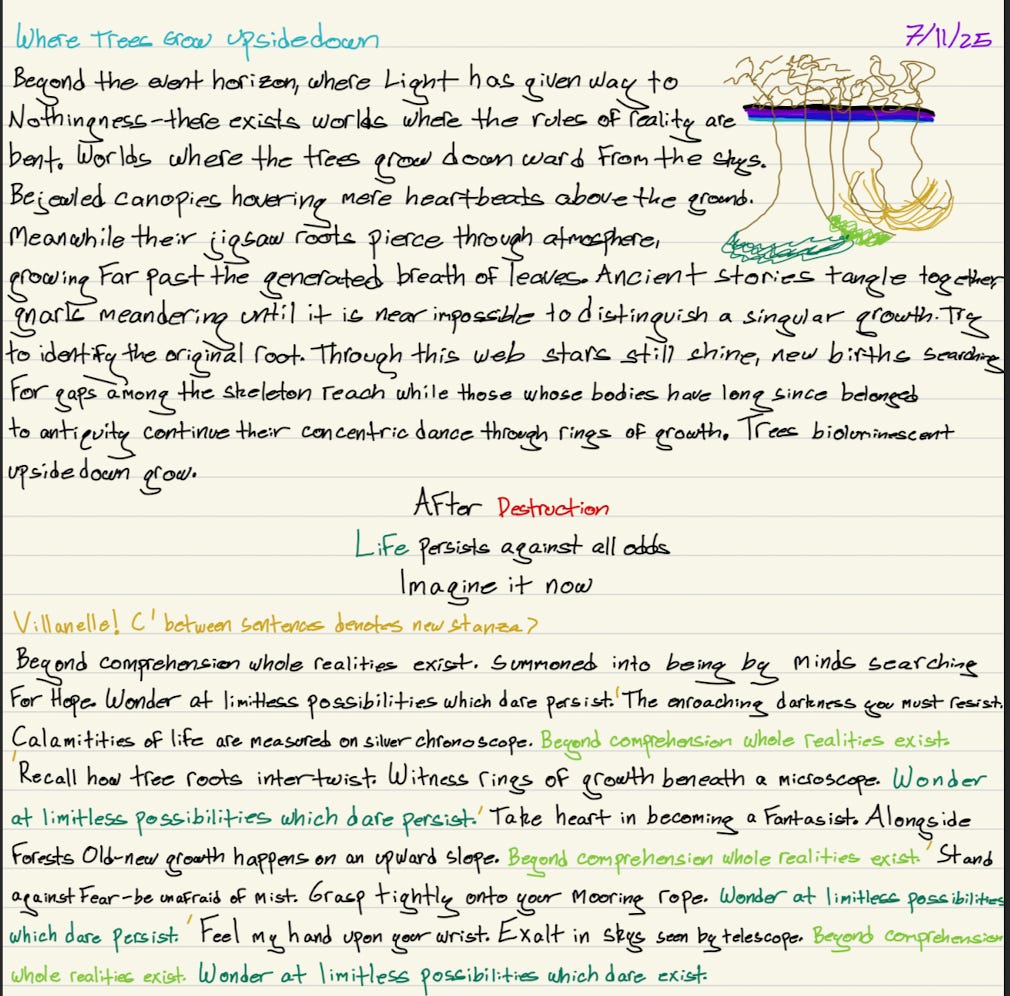 Where Trees Grow Upsidedown
7/11/25
Beyond the event horizon, where Light has given way to
Nothingness-there exists worlds where the rules of reality are
bent. Worlds where the trees grow down ward From the skys.
Bejewled canopies hovering mere heartbeats above the ground.
Meanwhile their jigsaw roots pierce through atmosphere,
growing Far past the generated breath of leaves. Ancient stories tangle together,
gnarls meandering until it is near impossible to distinguish a singular growth. Try
to identify the original root. Through this web stars still shine, new births searching
For gaps among the skeleton reach while those whose bodies have long since belonged
to antiquity continue their concentric dance through rings of growth. Trees bioluminescent
upsidedown grow.
AFter Destruction
LiFe persists against all odds
Imagine it now
Villanelle! (' between sentences denotes new stanza)
Beyond comprehension whole realities exist. Summoned into being by minds searching
For Hope. Wonder at limitless possibilities which dare persist.' The enroaching darkness you must resist.
Calamitities of life are measured on silver chronoscope. Beyond comprehension whole realities exist.
'Recall how tree roots intertwist. Witness rings of growth beneath a microscope. Wonder
at limitless possibilities which dare persist.' Take heart in becoming a Fantasist. Alongside
Forests Old-new growth happens on an upward slope. Beyond comprehension whole realities exist.' Stand
against Fear-be unafraid of mist. Grasp tightly onto your Mooring rope. Wonder at limitless possibilities
which dare Persist.' Feel my hand upon your wrist. Exalt in skys seen by telescope. Beyond comprehension
whole realities exist. Wonder at limitless possibilities which dare exist.